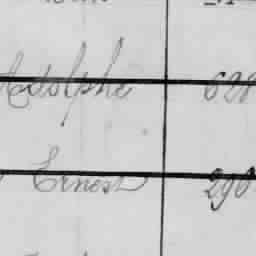 Adolphe 628
Ernest 290